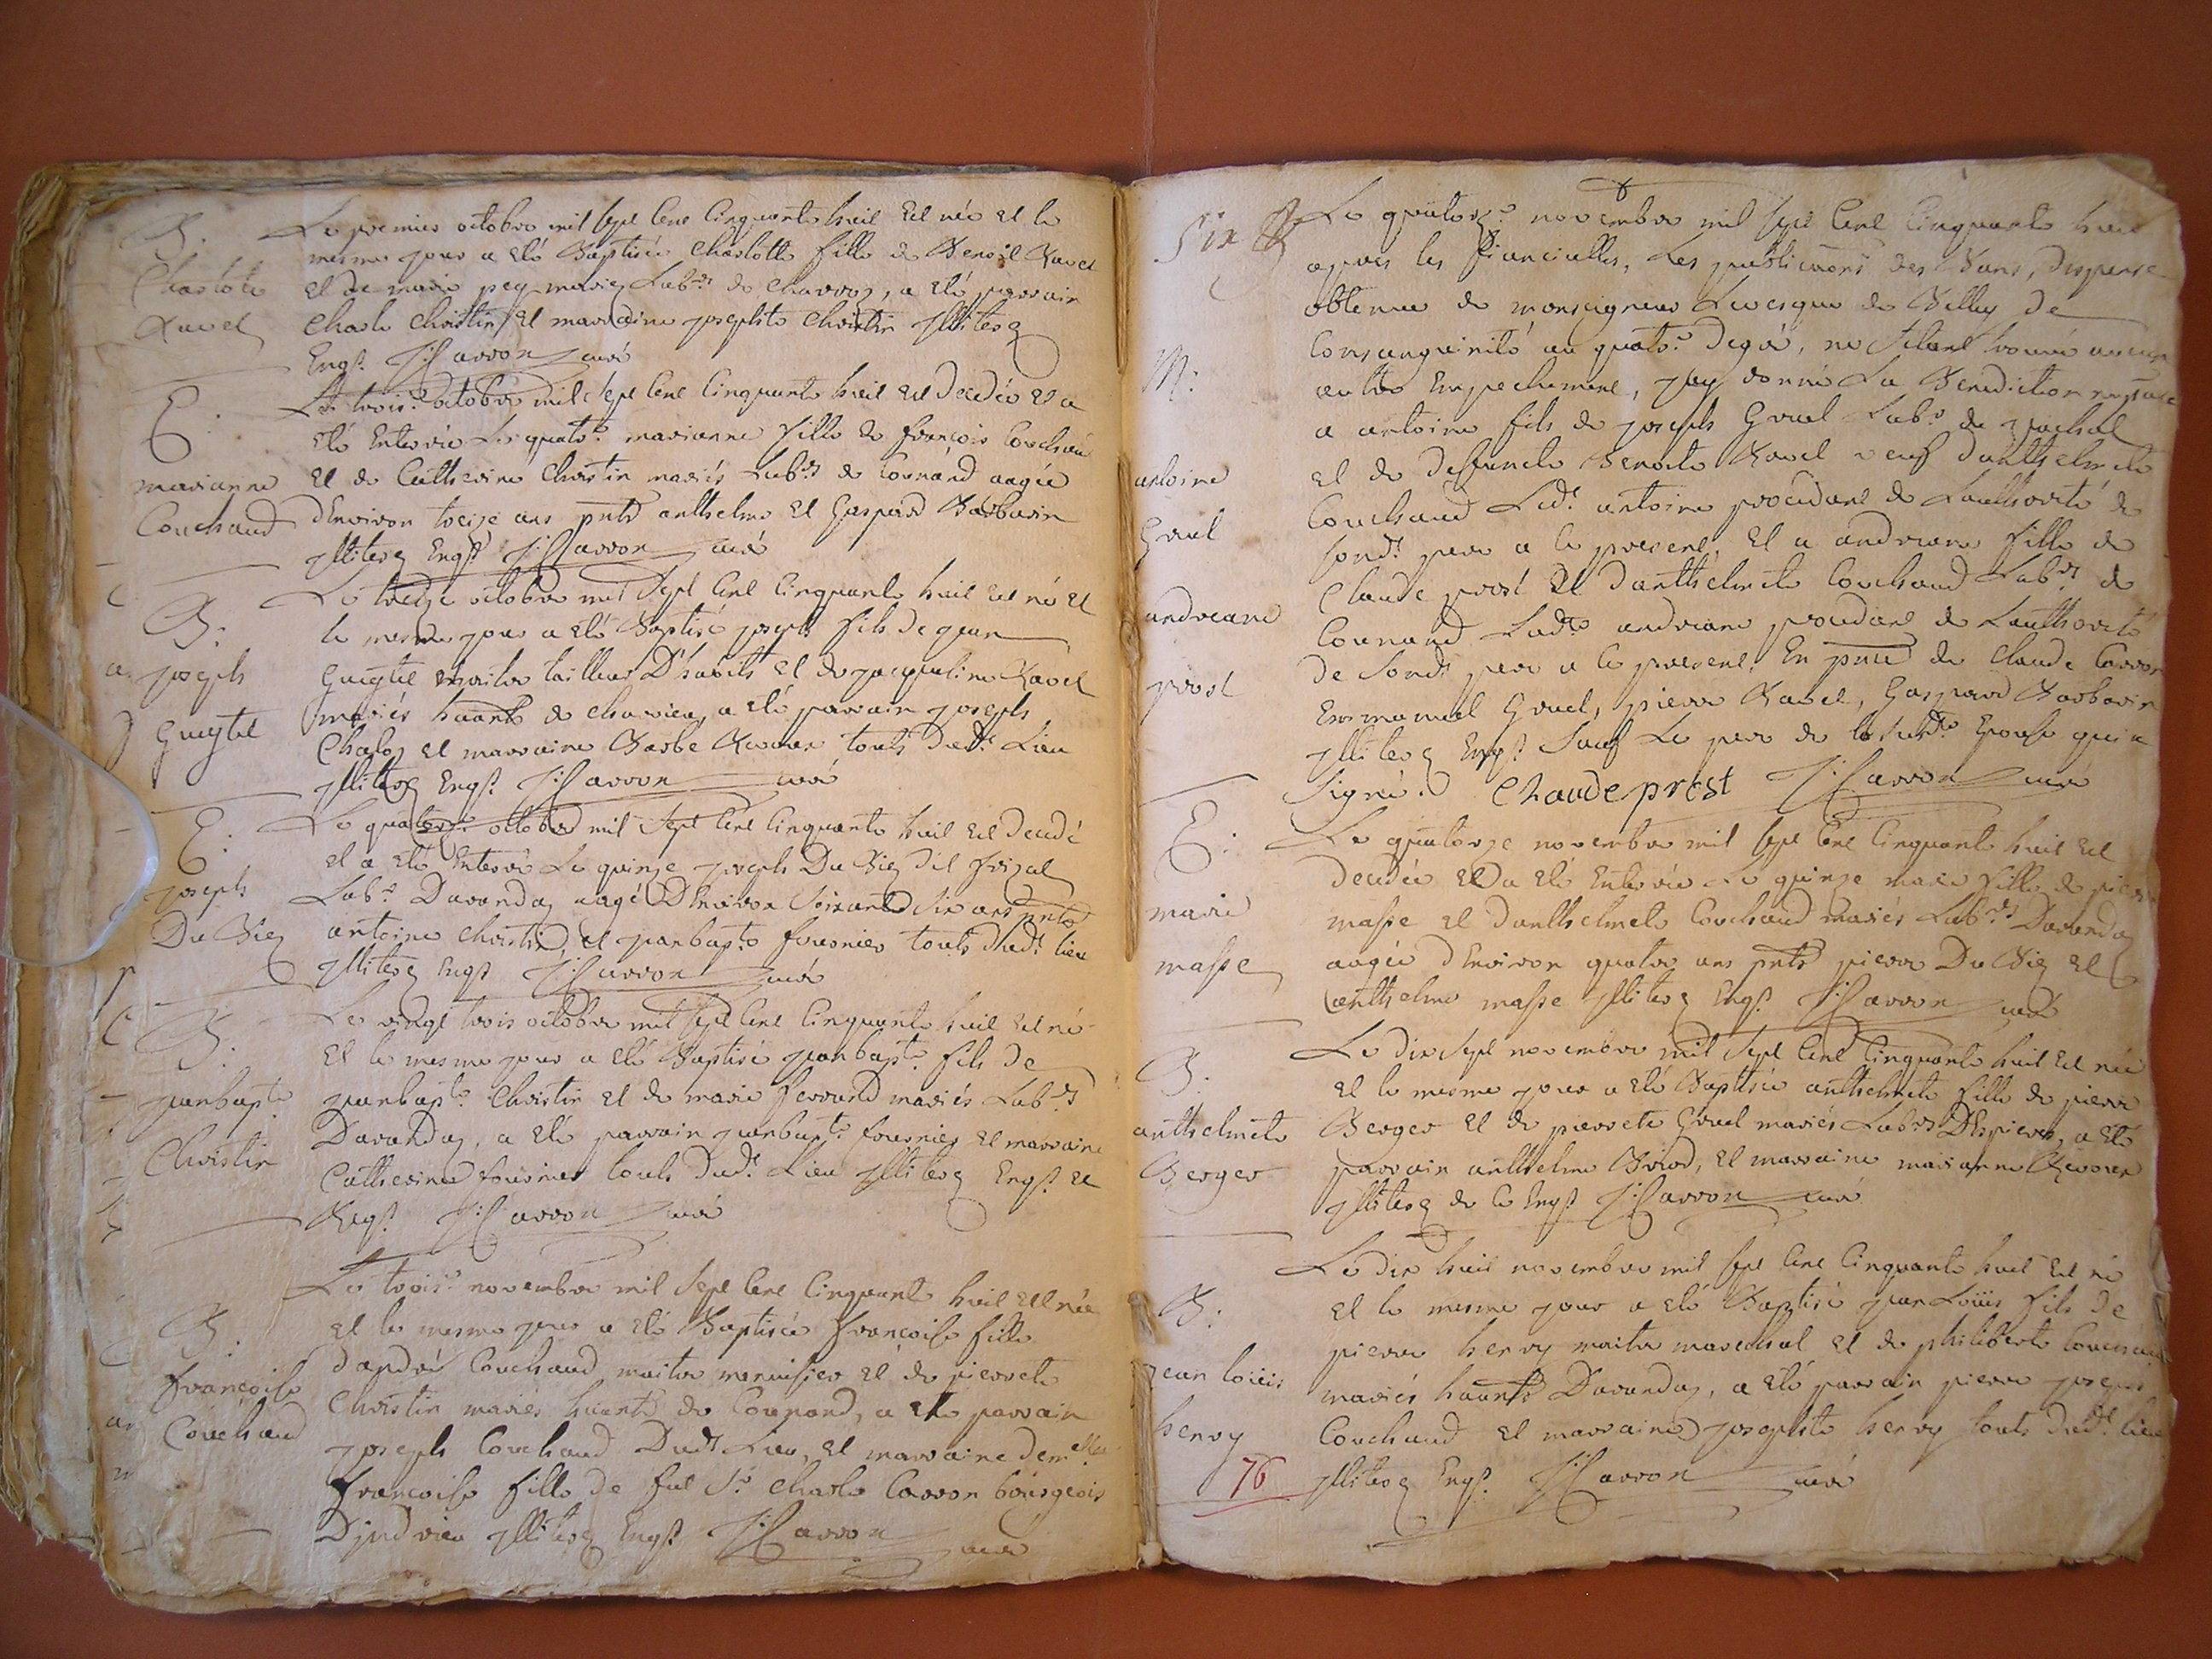 B.
Charlote
Ravel
Le premier octobre mil sept cent cinquante huit est née et le
mesme jour a eté Baptisée Charlotte fille de Benoit Ravel
et de marie pey mariez Lab.rs de charvoz, a eté parrain
Charle Christin et marraine josephte Christin illiterez
Enqs. J: Carron curé
E.
marianne
Couchaud
Le trois.e octobre mil sept cent cinquante huit est decedée et a
eté Enterrée Le quatr.e marianne fille de françois Couchaud
et de Catherine Christin mariés Lab.rs de Counand aagée
d'Environ treize ans pnts anthelme et Gaspard Barbarin
illiterez Enqs. J: Carron curé
B.
joseph
Guytel
Le treize octobre mil sept cent cinquante huit est né et
le mesme jour a eté Baptisé joseph fils de jean
Guytel maitre tailleur D'habits et de jacqueline Ravel
mariés haants de charvieu, a eté parrain joseph
Chaley et marraine Barbe touts dud.t Lieu
illiterez Enqs. J: Carron curé
E.
joseph
Du Biez
Le quatorze octobre mil sept cent cinquante huit est decedé
et a eté Enterré Le quinze joseph Du Biez dit
Lab.r Davanday aagé D'Environ soixante six ans pnts
antoine Christin, et jeanbapte fournier touts dud.t lieu
illiterez Enqs. J: Carron curé
B.
jeanbapte
Christin
Le vingt trois octobre mil sept cent cinquante huit est né
et le mesme jour a eté Baptisé jeanbapte. fils de
jeanbapte. Christin et de marie ferrand mariés Lab.rs
Davanday, a eté parrain jeanbapte fournier et marraine
Catherine fournier touts dud.t Lieu illiterez Enqs. et
Reqs. J: Carron curé
B.
françoise
Couchaud
Le trois.e novembre mil sept cent cinquante huit est née
et le mesme jour a eté Baptisée françoise fille
d'andré Couchaud maitre menuisier et de pierrete
Christin mariés haants de Counand, a eté parrain
joseph Couchaud Dud.t Lieu, et marraine dem.elle
françoise fille de fut S.r Charle Carron bourgeois
Djndrieu illiterez Enqs. J: Carron curé
Six
M:
antoine
Gruel
andreane
prost
Le quatorz.e novembre mil sept cent cinquante huit
appres les fiancialles, Les publications des Bans, dispense
obtenue de monseigneur Levesque de Belley de
Consanguinité au quatr.e degré, ne s'etant trouvé aucun
autre Empechement, jay donné La Benediction nuptiale
a antoine fils de joseph Gruel Lab.r de
et de deffuncte Benoite Ravel veuf d'anthelmete
Couchaud Led.t antoine procedant de Lauthorité de
sond.t pere a ce present, et a andreane fille de
Claude prost et d'anthelmete Couchaud Lab.rs de
Counand Lad.te andreane procedant de Lauthorité
de sond.t pere a ce present, En pnce de Claude Carron
Emmanuel Gruel, pierre Ravel, Gaspard Barbarin
illiterez Enqs. Sauf Le pere de la sud.te Epouse qui a
signé. Chaude prost J: Carron curé
E.
marie
masse
Le quatorze novembre mil sept cent cinquante huit est
decedée et a eté Enterrée Le quinze marie fille de pierre
masse et d'anthelmete Couchaud mariés Lab.rs Davanday
aagée d'Environ quatre ans pnts pierre Du Biez et
anthelme masse illiterez Enqs. J: Carron curé
B.
anthelmete
Berger
Le dix sept novembre mil sept cent cinquante huit est née
et le mesme jour a eté Baptisée anthelmete fille de pierre
Berger et de pierrete Gruel mariés Lab.rs D'Espierre, a eté
parrain anthelme Briod, et marraine marianne
illiterez de ce Enqs. J: Carron curé
B.
jean loüis
henry
76
Le dix huit novembre mil sept cent cinquante huit est né
et le mesme jour a eté Baptisé jean Loüis fils de
pierre henry maitre marechal et de philiberte Couchaud
mariés haants Davanday, a eté parrain pierre joseph
Couchaud et marraine josephte henry touts dud.t lieu
illiterez Enqs. J: Carron curé